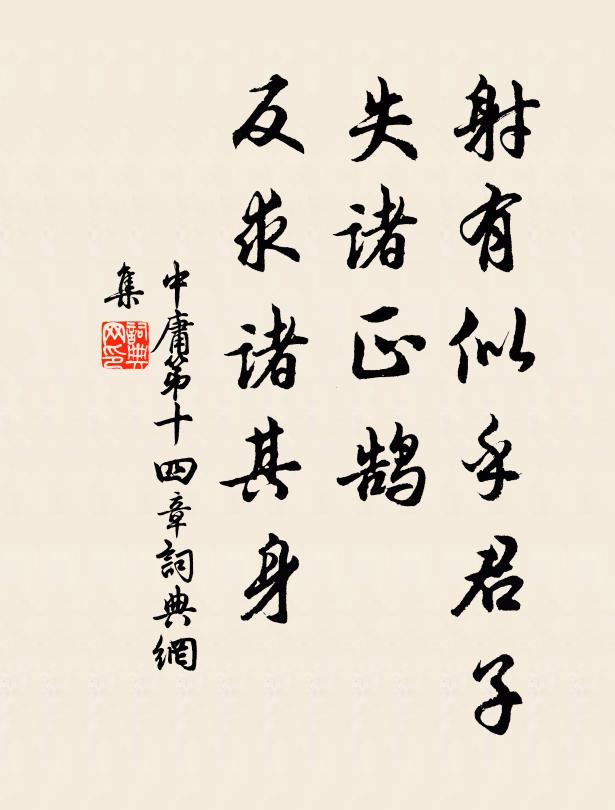 射有似乎君子
失諸正鵠
反求諸其身
中庸第十四章詞典網
集
詞典
网印